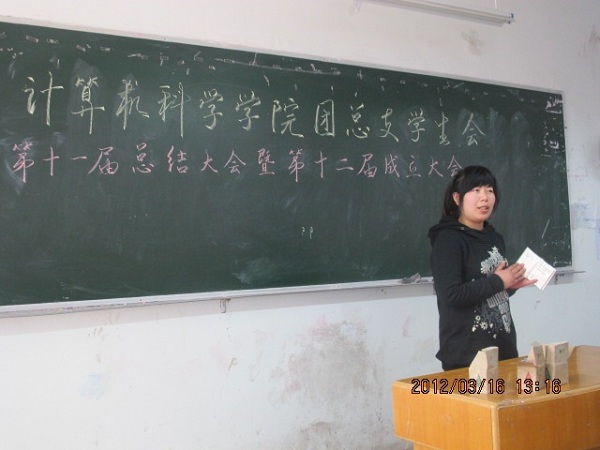 计算机科学学院团总支学生会
第十一届总结大会暨第十二届成立大会
2012/03/16 13:16